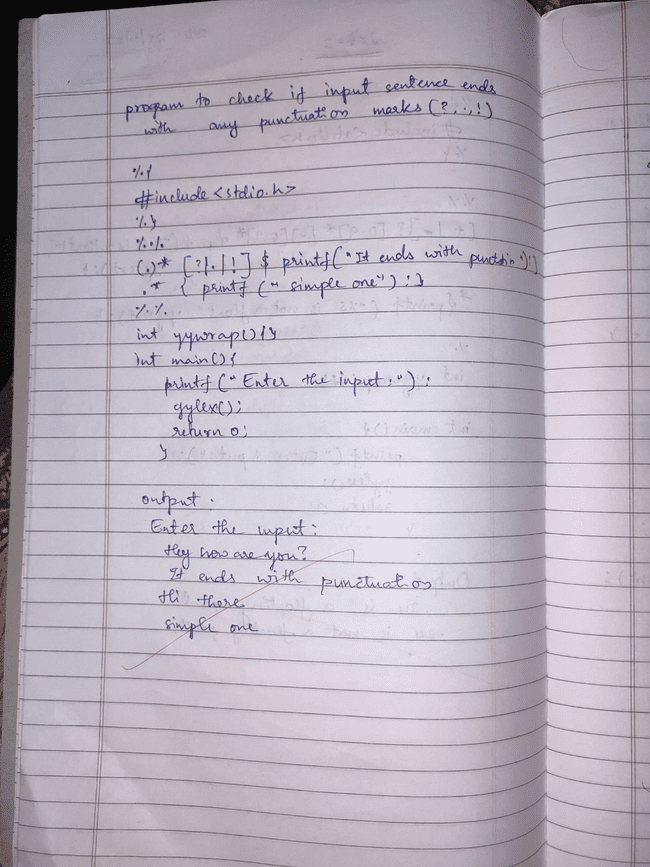 program to check if input sentence ends
with any punctuation marks (?, ., !)
%{
#include <stdio.h>
%}
%%
(.)* [?|.|!] $ printf("It ends with punctuation");}
.* { printf ("simple one") ; }
%%
int yywrap(){}
int main(){
printf("Enter the input:") ;
yylex();
return 0;
}
output .
Enter the input :
Hey how are you?
It ends with punctuation
Hi there
simple one